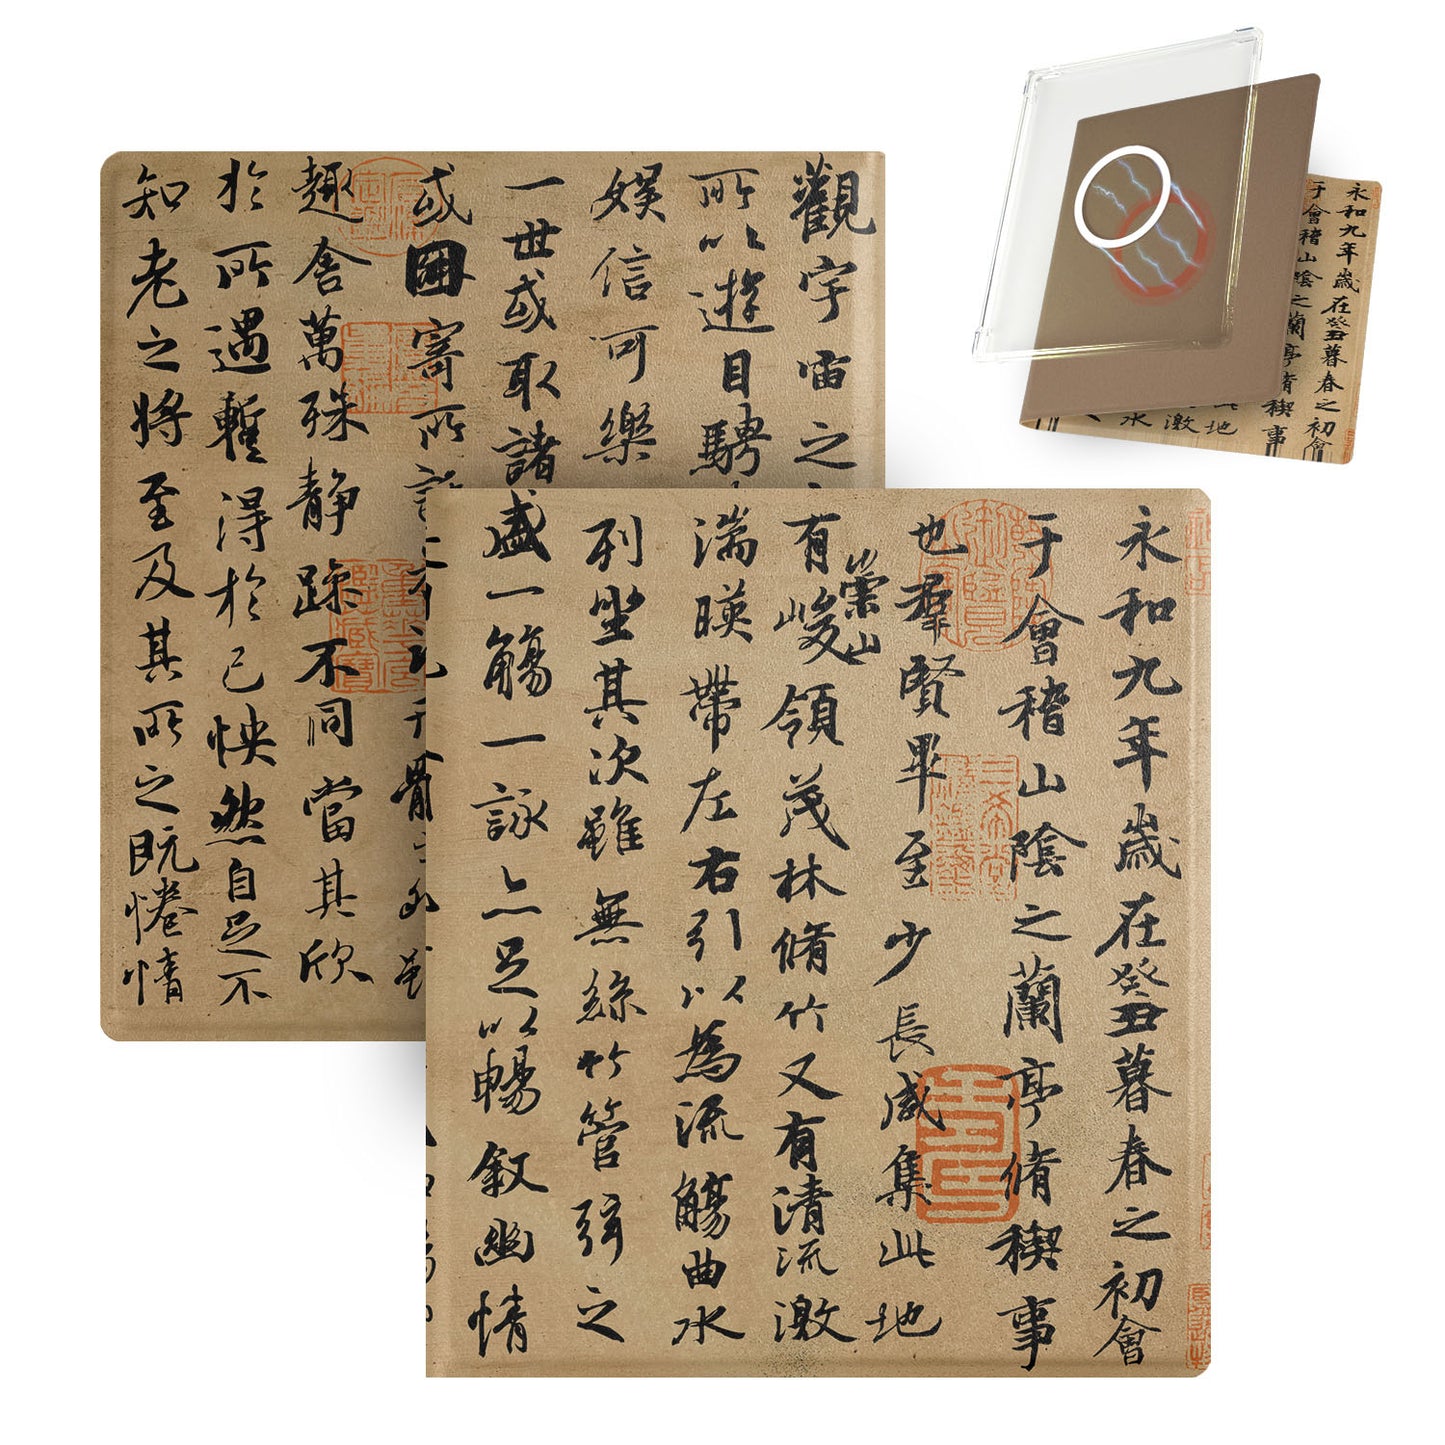 永和九年歲在癸丑暮春之初會
于會稽山陰之蘭亭脩稧事
也羣賢畢至少長咸集此地
有崇山峻領茂林脩竹又有清流激
湍暎帶左右引以為流觴曲水
列坐其次雖無絲竹管弦之
盛一觴一詠亦足以暢敘幽情
觀宇宙之
所以遊目騁
娛信可樂
一世或取諸
或因寄所託
趣舍萬殊靜躁不同當其欣
於所遇暫得於己怏然自足不
知老之將至及其所之既惓情
永和九年歲在癸丑暮春之初會
于會稽山陰之蘭亭脩稧事
地
激
水